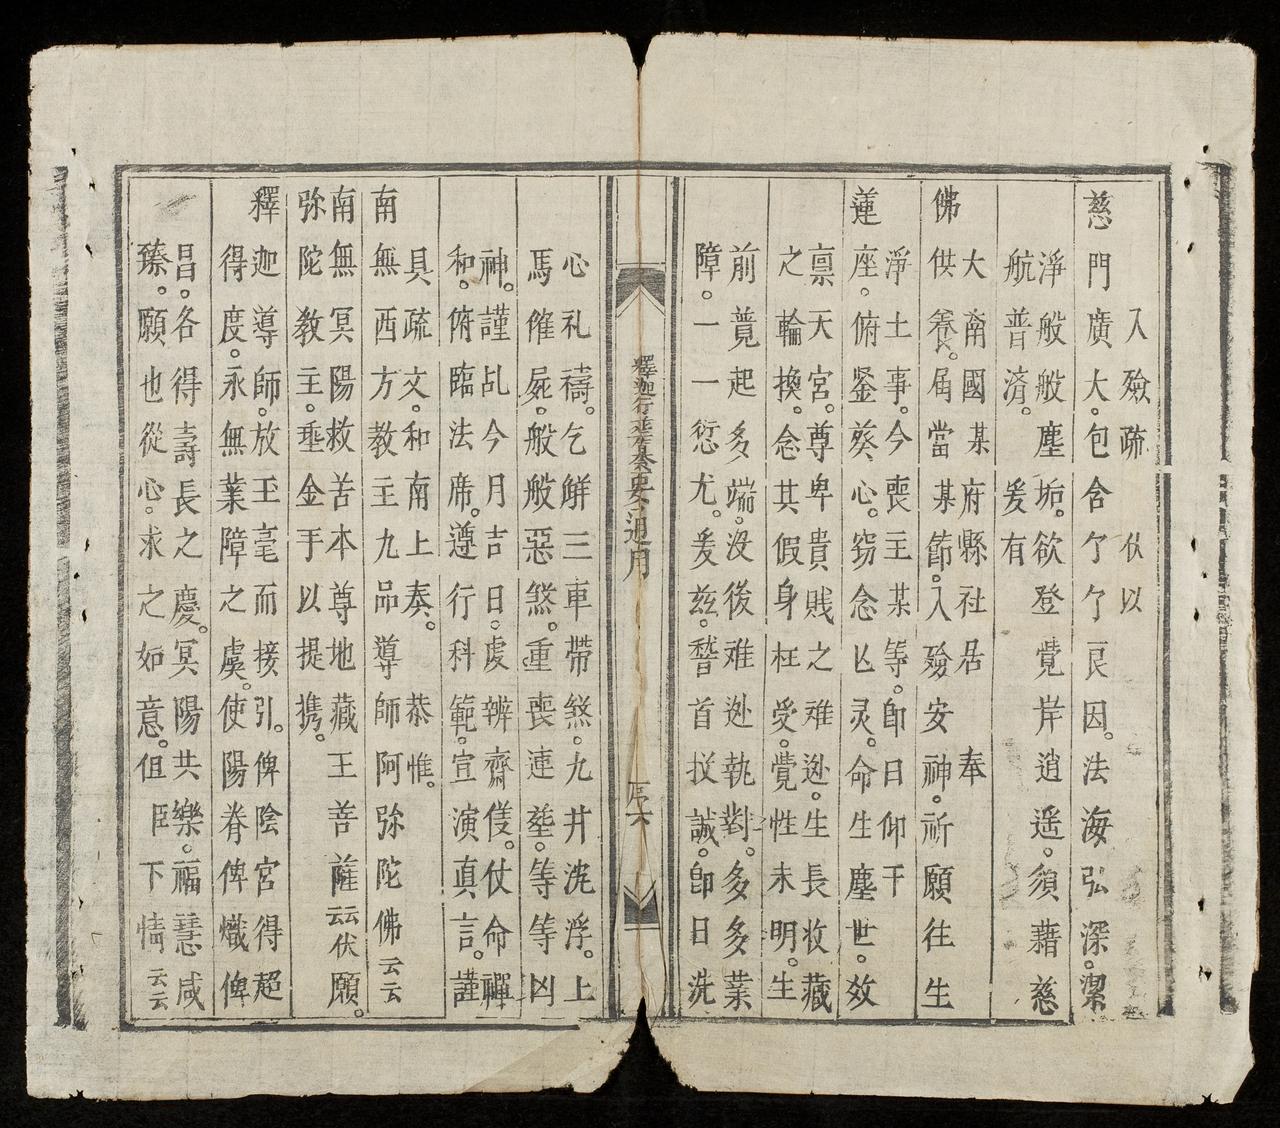 入殮疏　伏以
慈門廣大。包含个个良因。法海弘深。潔
淨般般塵垢。欲登覺岸逍遥。須藉慈
航普濟。爰有
大南國某府縣社居　奉
佛供養。届當某節。入殮安神。祈願往生
淨土事。今喪主某等。卽日仰干
蓮座。俯鉴葵心。窃念亾灵。命生塵世。效
禀天宮。尊卑貴賎之难迯。生長收藏
之輪換。念其假身枉受。覺性未明。生
前覓起多端。没後难迯執對。多多業
障。一一愆尤。爰兹。稽首投誠。卽日洗
心礼禱。乞觧三車帶煞。九井洗浮。上
馬催屍。般般惡煞。重喪連塟。等等凶
神。謹占今月吉日。虔辨齋筵。仗命禪
和。俯臨法席。遵行科範。宣演真言。謹
具疏文。和南上奏。　恭惟。
南無西方教主九品導師阿弥陀佛云云
南無冥陽救苦本尊地藏王菩薩云云伏願。
弥陀教主。垂金手以提携。
釋迦導師。放玉毫而接引。俾陰宮得超
得度。永無業障之虞。使陽眷俾熾俾
昌。各得壽長之慶。冥陽共樂。福慧咸
臻。願也從心。求之如意。但臣下情云云
通用
序六